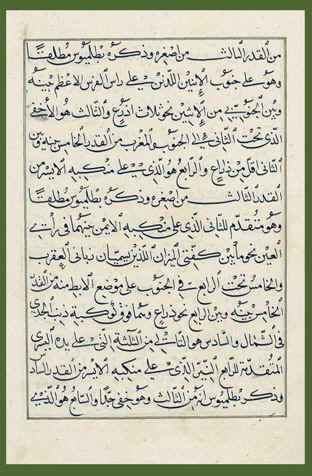 من القدر الثالث من اصغره وذكره بطلميوس مطلقًا
وهو على جنوب الاثنين اللذين على راس الفرس الاعظم بينه
وبين الجنوبي من الاثنين نحو ثلاث اذرع والثالث هو الاخفى
الذي تحت الثاني في الجنوب والمغرب من القدر الخامس بينه وبين
الثاني اقل من ذراع والرابع هو الذي على منكبه الايسر من
القدر الثالث من اصغره وذكره بطلميوس مطلقًا
وهو متقدم للثاني الذي على منكبه الايمن بينهما في راي
العين نحو ما بين كفتي الميزان اللذين يسميان زباني العقرب
والخامس تحت الرابع في الجنوب على موضع الابط من القدر
الخامس بينه وبين الرابع نحو ذراع وهما فوق كوكبي ذنب الجدي
في الشمال والسادس هو الثالث من الثلثة التي على يده اليسرى
المتقدمة للرابع النير الذي على منكبه الايسر من القدر الثالث
وذكر بطلميوس انه من الثالث وهو خفي جدًا والسابع هو الذي